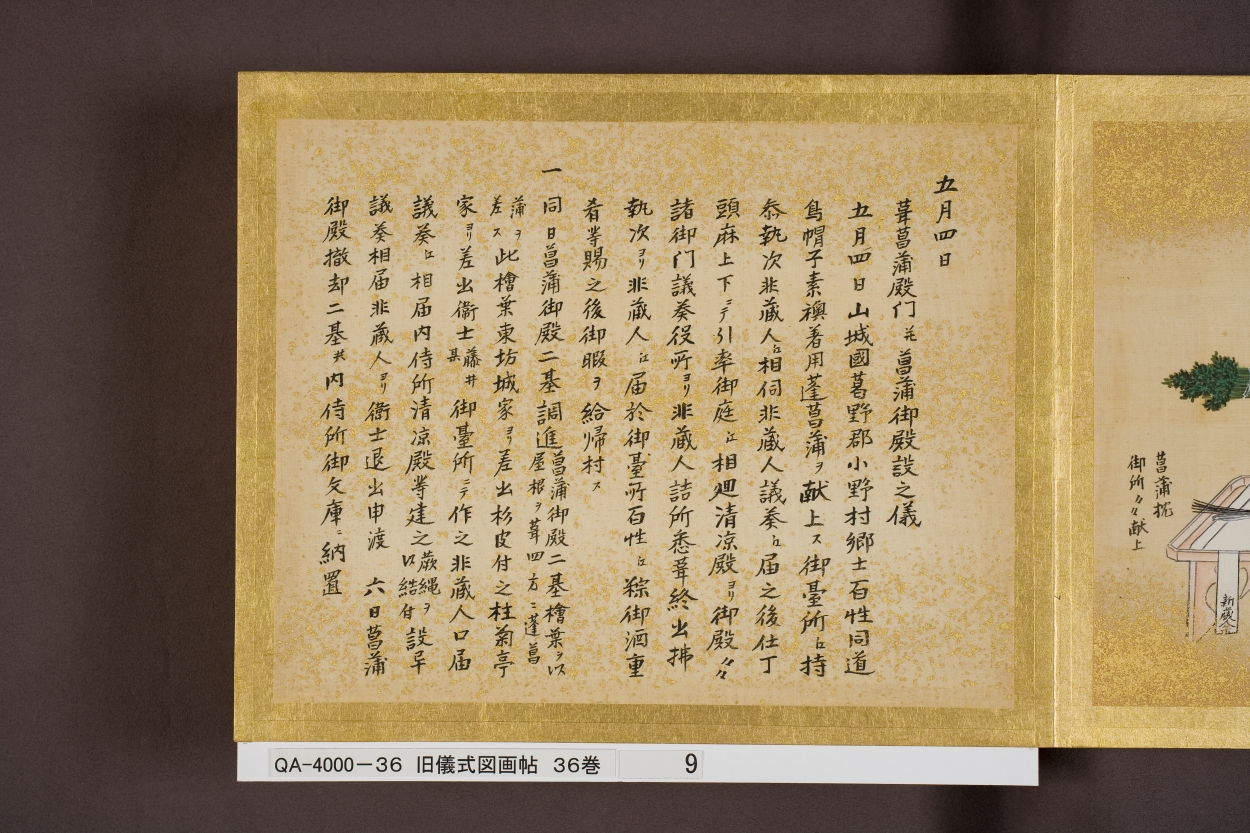 五月四日
葺菖蒲殿门並菖蒲御殿設之儀
五月四日山城國葛野郡小野村郷士百性同道
烏帽子素襖著用蓬菖蒲ヲ献上ス御臺所江持
叅執次非蔵人江相伺非蔵人議奏江届之後仕丁
頭麻上下ニテ引率御庭江相廻清凉殿ヨリ御殿々々
諸御门議奏役所ヨリ非蔵人詰所悉葺終出拂
執次ヨリ非蔵人江届於御臺所百性江粽御酒重
肴等賜之後御暇ヲ給帰村ス
一同日菖蒲御殿二基調進菖蒲御殿二基檜葉ヲ以
屋根ヲ葺四方ニ蓬菖
蒲ヲ
差ス此檜葉東坊城家ヨリ差出杉皮付之柱菊亭
家ヨリ差出衞士藤井
某御臺所ニテ作之非蔵人口届
議奏江相届内侍所清凉殿等建之蕨縄ヲ
以結付設畢
議奏相届非蔵人ヨリ衞士退出申渡 六日菖蒲
御殿撤却二基共内侍所御文庫ニ納置
菖蒲枕
御所々々献上
新蔵人
QA-4000-36 旧儀式図画帖 36巻
9